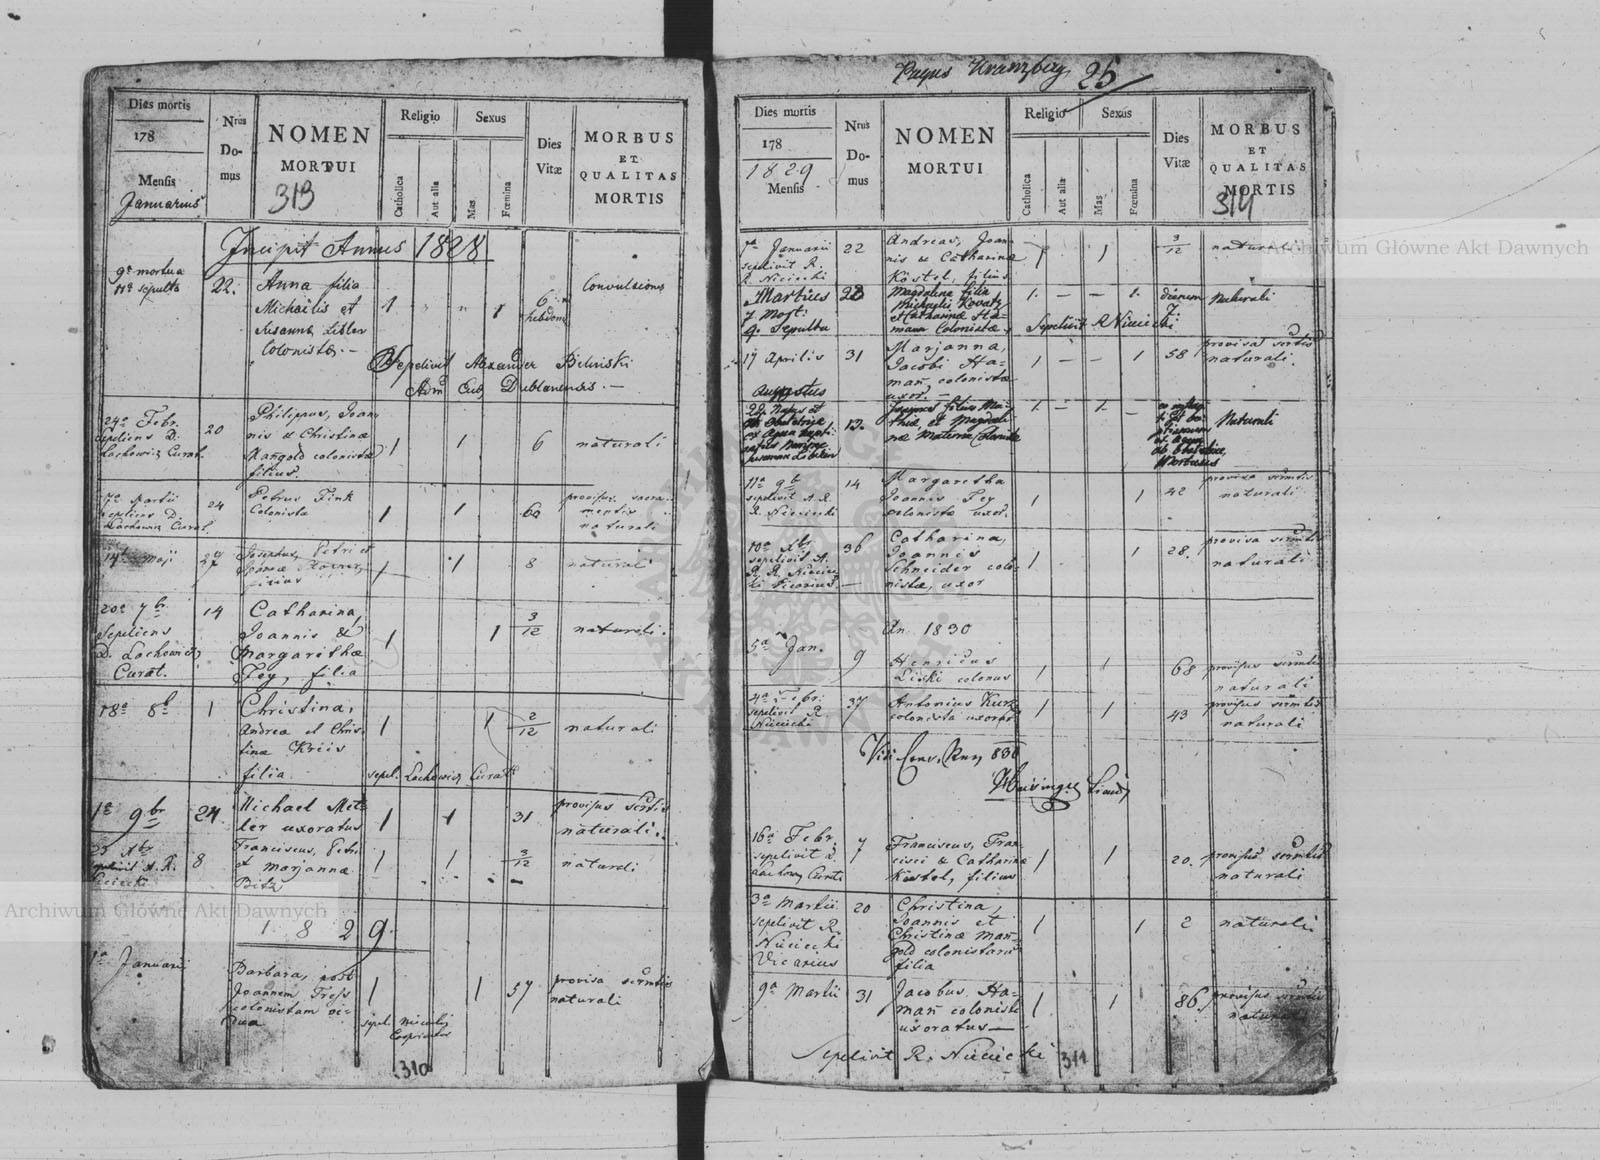 Dies mortis
178
Mensis
Januarius
Nrus
Do-
mus
NOMEN
MORTUI
313
Religio
Catholica
Aut alia
Sexus
Mas
Fœmina
Dies
Vitæ
MORBUS
ET
QUALITAS
MORTIS
Incipit Annus 1828
9a mortua
11a sepulta
22.
Anna filia
Michaelis et
Susanna Libler
Colonistæ. —
1
1
6
hebdom
Convulsiones
Sepelivit Alexander Bilinski
Adm Cub Dublanensis. —
24a Febr.
Sepeliens D.
Lachowicz Curat.
20
Philippus, Joan
nis & Christinæ
Mangold colonistæ
filius
1
1
6
naturali
7a Martii
Sepeliens D.
Lachowicz Curat.
24
Petrus Fink
Colonista
1
1
60
provisus sacra
mentis
naturali
14t Maji
27
Josephus, Petri et
filius
1
1
8
naturali
20a 7br
Sepeliens
D. Lachowicz
Curat.
14
Catharina,
Joannis &
Margarithæ
Fey, filia
1
1
3/12
naturali.
18a 8b
1
Christina,
Andreæ et Chris
tinæ Kriis
filia
1
1
2/12
naturali
sepel. Lachowicz Curat
1a 9br
24
Michael Met
ler uxoratus
1
1
31
provisus scrtis
naturali.
25 Xbr
sepelivit A. R.
Niciecki
8
Franciscus, Petri
et Marjannæ
Bitz
1
1
3/12
naturali
1829.
1a Januarii
Barbara, post
Joannem Fress
colonistam vi-
dua
1
1
57
provisa scrmtis
naturali
310
Pagus Kranzberg 25
Dies mortis
178
1829
Mensis
Nrus
Do-
mus
NOMEN
MORTUI
Religio
Catholica
Aut alia
Sexus
Mas
Fœmina
Dies
Vitæ
MORBUS
ET
QUALITAS
MORTIS
314
Januarii
sepelivit R.
R Niciecki
22
Andreas, Joan
nis & Catharinæ
Köstel, filius
1
1
3/12
naturali
Martius
7 Mort:
9. Sepulta
28
Magdalena filia
Michaelis Kovatz
et Catharinæ Ha-
man Colonistæ
1. — — 1.
dierum
7.
Naturali
Sepelivit R Niciecki
17 Aprilis
31
Marjanna,
Jacobi Ha-
man colonistæ
uxor. —
1 — — 1
58
provisa scrtis
naturali.
Augustus
22. Natus et
ab Obstetrice
ex aqua bapti
13.
filius Ma-
thiæ et Magdale
næ Materne Colonistæ
1. — 1. —
Naturali
11a 9b
sepelivit A. R.
R. Niciecki
14
Margaretha
Joannis Fey
colonistæ uxor.
1
1
42
provisa scrmtis
naturali
10a Xbr
sepelivit A.
R. R. Niciec
ki Vicarius. —
36
Catharina,
Joannis
Schneider colo-
nistæ, uxor
1
1
28.
provisa scrmtis
naturali
An. 1830
5a Jan.
9
Henricus
Liski colonus
1
1
68
provisus scrmtis
naturali
4a Febr:
sepelivit R.
Niciecki
37
Antonius Kurz
colonista uxorat
1
1
43
provisus scrmtis
naturali
Vidi 830
16a Febr.
sepelivit D.
Lachow Curat
7
Franciscus, Fran
cisci & Catharinæ
Kestel, filius
1
1
20.
provisus scrmtis
naturali
3a Martii
sepelivit R.
Niciecki
Vicarius
20
Christina,
Joannis et
Christinæ Man-
gold colonistarum
filia
1
1
2
naturali
9a Martii
31
Jacobus Ha-
man colonista
uxoratus —
1
1
86.
provisus scrmtis
naturali
Sepelivit R. Niciecki
311
Archiwum Główne Akt Dawnych
Archiwum Główne Akt Dawnych